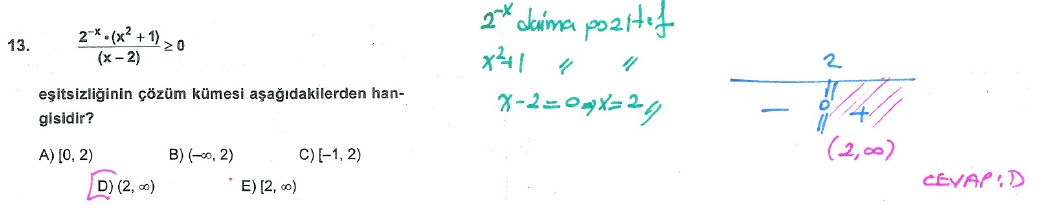 13. 2^-x · (x² + 1) / (x – 2) ≥ 0
eşitsizliğinin çözüm kümesi aşağıdakilerden han-
gisidir?
A) [0, 2) B) (–∞, 2) C) [–1, 2)
D) (2, ∞) E) [2, ∞)
2^-x daima pozitif
x²+1 〃 〃
x-2=0 ⇒ x=2 //
2
– 0 +
(2, ∞)
CEVAP: D